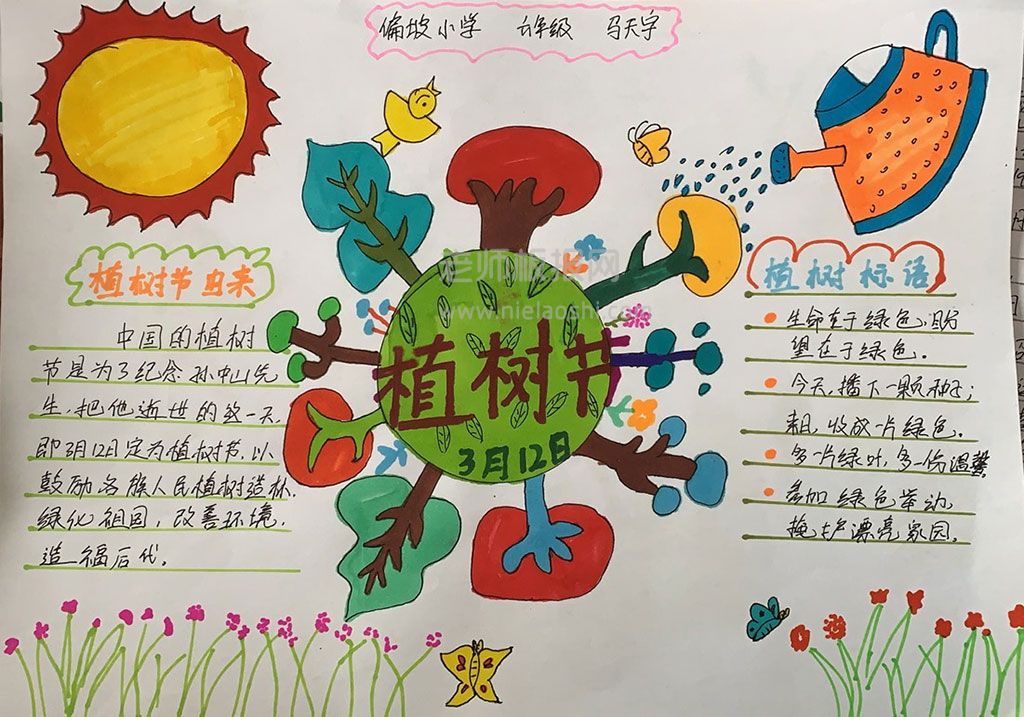 偏坡小学 六年级 马天宇
老师板报网
www.nielaoshi.com
植树节由来
中国的植树
节是为了纪念孙中山先
生,把他逝世的这一天,
即3月12日定为植树节,以
鼓励各族人民植树造林,
绿化祖国,改善环境,
造福后代。
植树节
3月12日
植树标语
生命在于绿色,
望在于绿色。
今天,播下一颗种子;
收放一片绿色。
多一片绿叶,多一份温馨
参加绿色举动,
掩护漂亮家园。